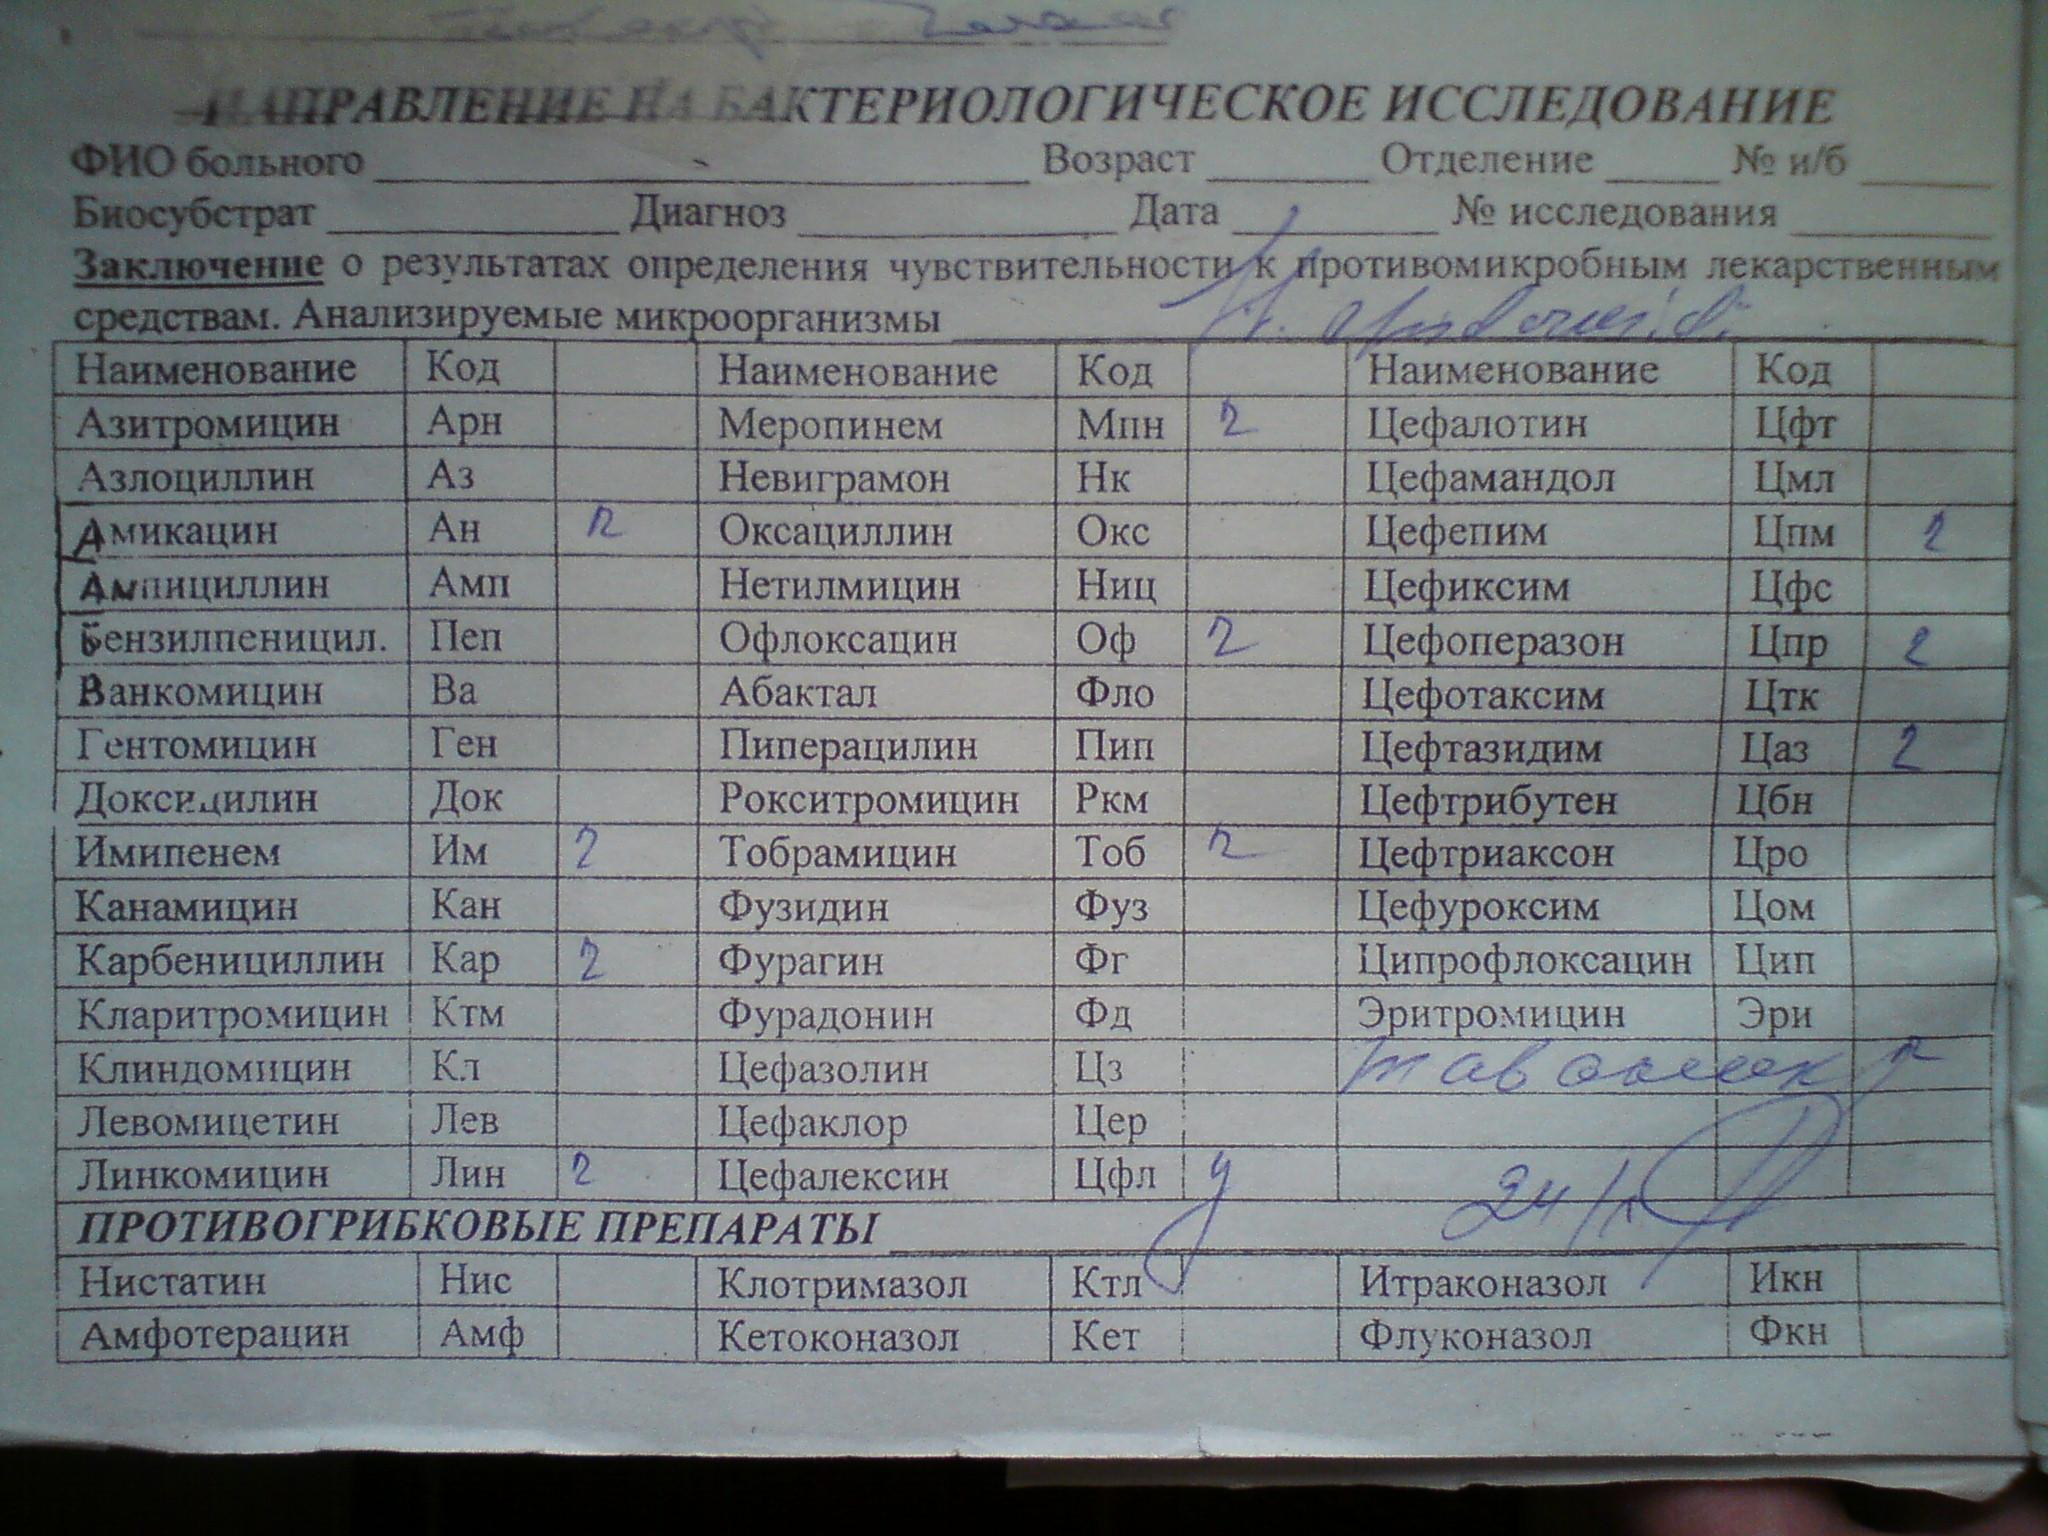 НАПРАВЛЕНИЕ НА БАКТЕРИОЛОГИЧЕСКОЕ ИССЛЕДОВАНИЕ
ФИО больного Возраст Отделение № и/б
Биосубстрат Диагноз Дата № исследования
Заключение о результатах определения чувствительности к противомикробным лекарственным
средствам. Анализируемые микроорганизмы
Наименование Код Наименование Код Наименование Код
Азитромицин Арн Меропинем Мпн 2 Цефалотин Цфт
Азлоциллин Аз Невиграмон Нк Цефамандол Цмл
Амикацин Ан Оксациллин Окс Цефепим Цпм 2
Ампициллин Амп Нетилмицин Ниц Цефиксим Цфс
Бензилпеницил. Пеп Офлоксацин Оф 2 Цефоперазон Цпр 2
Ванкомицин Ва Абактал Фло Цефотаксим Цтк
Гентомицин Ген Пиперацилин Пип Цефтазидим Цаз 2
Доксицилин Док Рокситромицин Ркм Цефтрибутен Цбн
Имипенем Им 2 Тобрамицин Тоб Цефтриаксон Цро
Канамицин Кан Фузидин Фуз Цефуроксим Цом
Карбенициллин Кар 2 Фурагин Фг Ципрофлоксацин Цип
Кларитромицин Ктм Фурадонин Фд Эритромицин Эри
Клиндомицин Кл Цефазолин Цз
Левомицетин Лев Цефаклор Цер
Линкомицин Лин 2 Цефалексин Цфл
ПРОТИВОГРИБКОВЫЕ ПРЕПАРАТЫ
Нистатин Нис Клотримазол Ктл Итраконазол Икн
Амфотерацин Амф Кетоконазол Кет Флуконазол Фкн